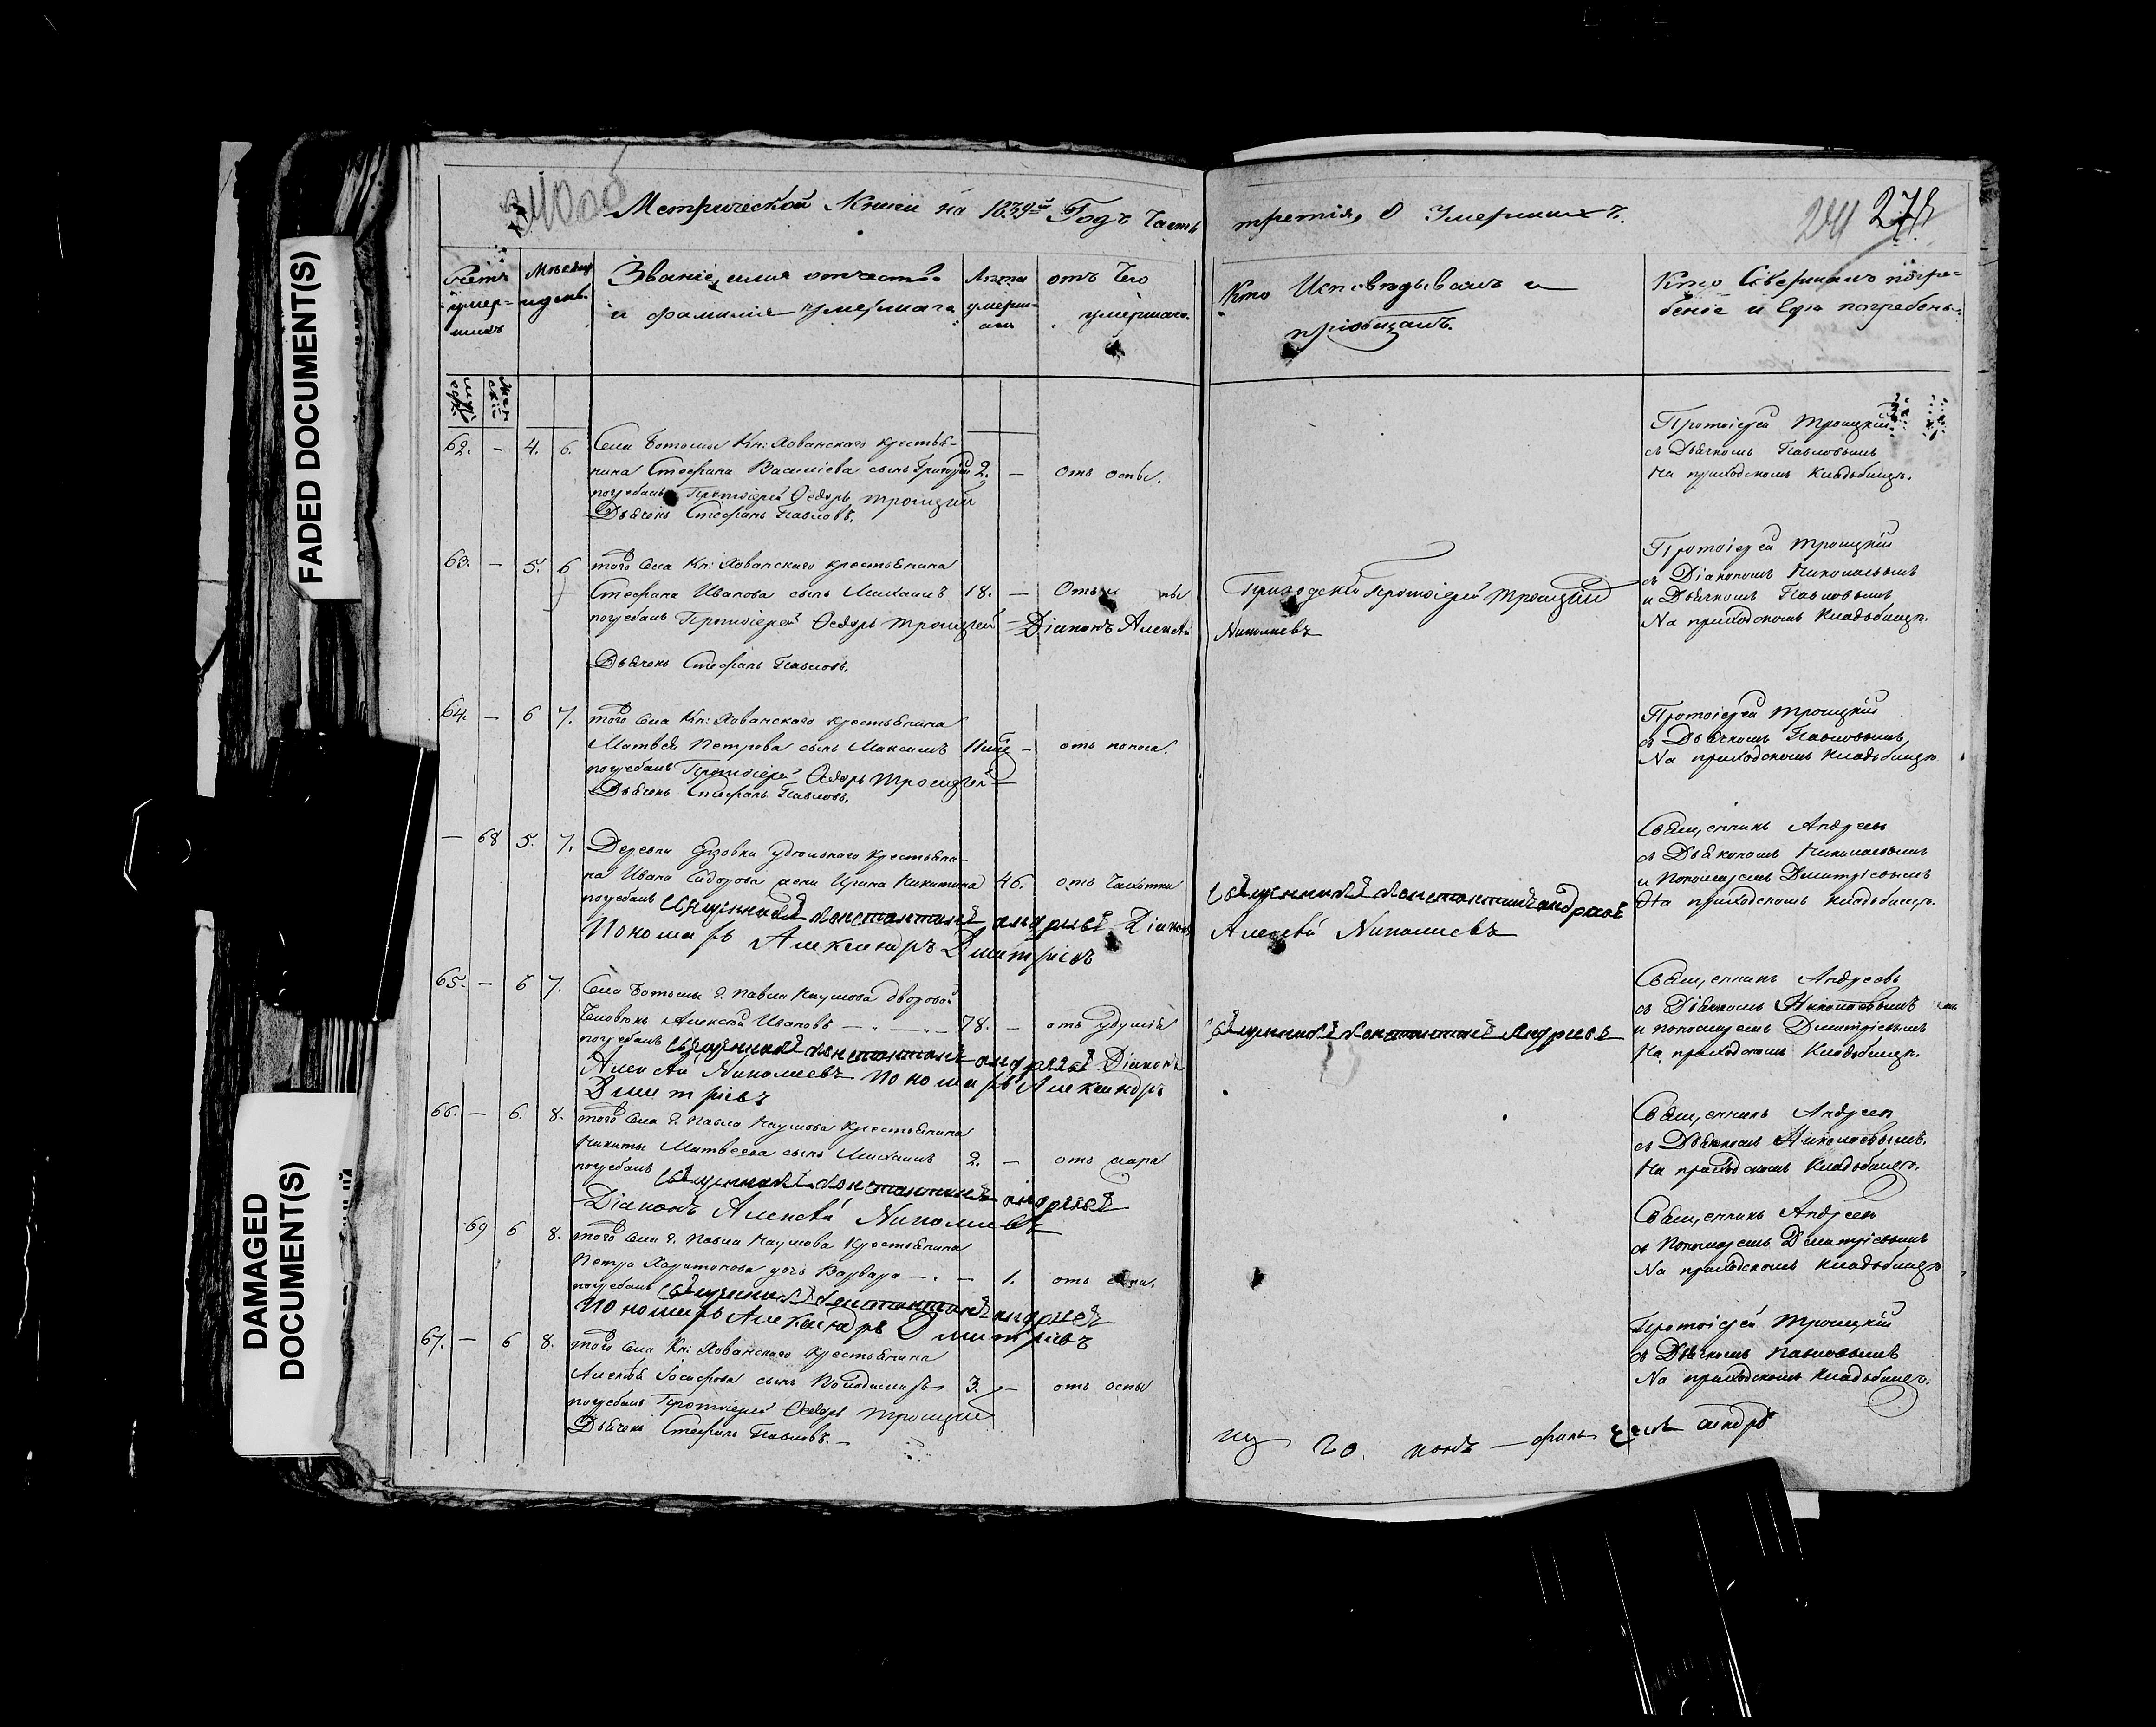 FADED DOCUMENT(S)
DAMAGED
DOCUMENT(S)
Метрической Книги на 1839й Годъ Часть
третія, о Умершихъ.
241 278
Счетъ умер-шихъ
Мѣсяцъ и день.
Званіе, имя отчество
и фамилія умершаго
Лѣта умерш-
отъ Чего
умершаго.
Кто Исповѣдывалъ и
пріобщалъ.
Кто Совершалъ погре-
беніе и Гдѣ погребены.
62. - 4. 6. Села Кн: Хованскаго крестья-
нина Стефана Василіева сынъ Григорій 2. - отъ оспы.
погребалъ Протоіерей Ѳедоръ Троицкій
Дьячекъ Стефанъ Павловъ.
Протоіерей Троицкій
съ Дьячкомъ Павловымъ
На приходскомъ Кладбищѣ.
63. - 5. 6 того Села Кн: Хованскаго крестьянина
Стефана Иванова сынъ Михаилъ 18. - Отъ
погребалъ Протоіерей Ѳедоръ Троицкій Діаконъ Алексѣй
Дьячекъ Стефанъ Павловъ.
Приходскій Протоіерей Троицкій
Николаевъ
Протоіерей Троицкій
съ Діакономъ Николаевымъ
и Дьячкомъ Павловымъ
На приходскомъ Кладбищѣ.
64. - 6 7. того Села Кн: Хованскаго крестьянина
Матвѣя Петрова сынъ Максимъ - отъ поноса.
погребалъ Протоіерей Ѳедоръ Троицкій
Дьячекъ Стефанъ Павловъ.
Протоіерей Троицкій
съ Дьячкомъ Павловымъ
На приходскомъ Кладбищѣ
- 68 5. 7. Деревни удѣльнаго крестьяни-
на Ивана Сидорова жена Ирина Никитина 46. отъ Чахотки
погребалъ Священникъ Константинъ Андреевъ Діаконъ
Пономарь Александръ Дмитріевъ
Священникъ Константинъ Андреевъ
Алексѣй Николаевъ
Священникъ Андреевъ
съ Дьякономъ Николаевымъ
и Пономаремъ Дмитріевымъ
На приходскомъ Кладбищѣ.
65. - 6 7. Села г. Павла Наумова дворовой
Человѣкъ Алексѣй Ивановъ 78. - отъ удушья
погребалъ Священникъ Константинъ Андреевъ Діаконъ
Алексѣй Николаевъ Пономарь Александръ
Дмитріевъ
Священникъ Константинъ Андреевъ
Священникъ Андреевъ
съ Діакономъ Николаевымъ
и пономаремъ Дмитріевымъ
На приходскомъ Кладбищѣ.
66. - 6. 8. того Села г. Павла Наумова Крестьянина
Никиты Матвеева сынъ Михаилъ 2. - отъ жара
погребалъ Священникъ Константинъ Андреевъ
Діаконъ Алексѣй Николаевъ
Священникъ Андреевъ
съ Дьякономъ Николаевымъ.
На приходскомъ Кладбищѣ.
69 6 8. того Села г. Павла Наумова Крестьянина
Петра Харитонова дочь Варвара - 1. отъ
погребалъ Священникъ Константинъ Андреевъ
Пономарь Александръ Дмитріевъ
Священникъ Андреевъ
съ Пономаремъ Дмитріевымъ
На приходскомъ Кладбищѣ
67. - 6 8. того Села Кн: Хованскаго Крестьянина
Алексѣя Іосифова сынъ 3. - отъ оспы
погребалъ Протоіерей Ѳедоръ Троицкій
Дьячекъ Стефанъ Павловъ.
Протоіерей Троицкій
съ Дьячкомъ Павловымъ
На приходскомъ Кладбищѣ.